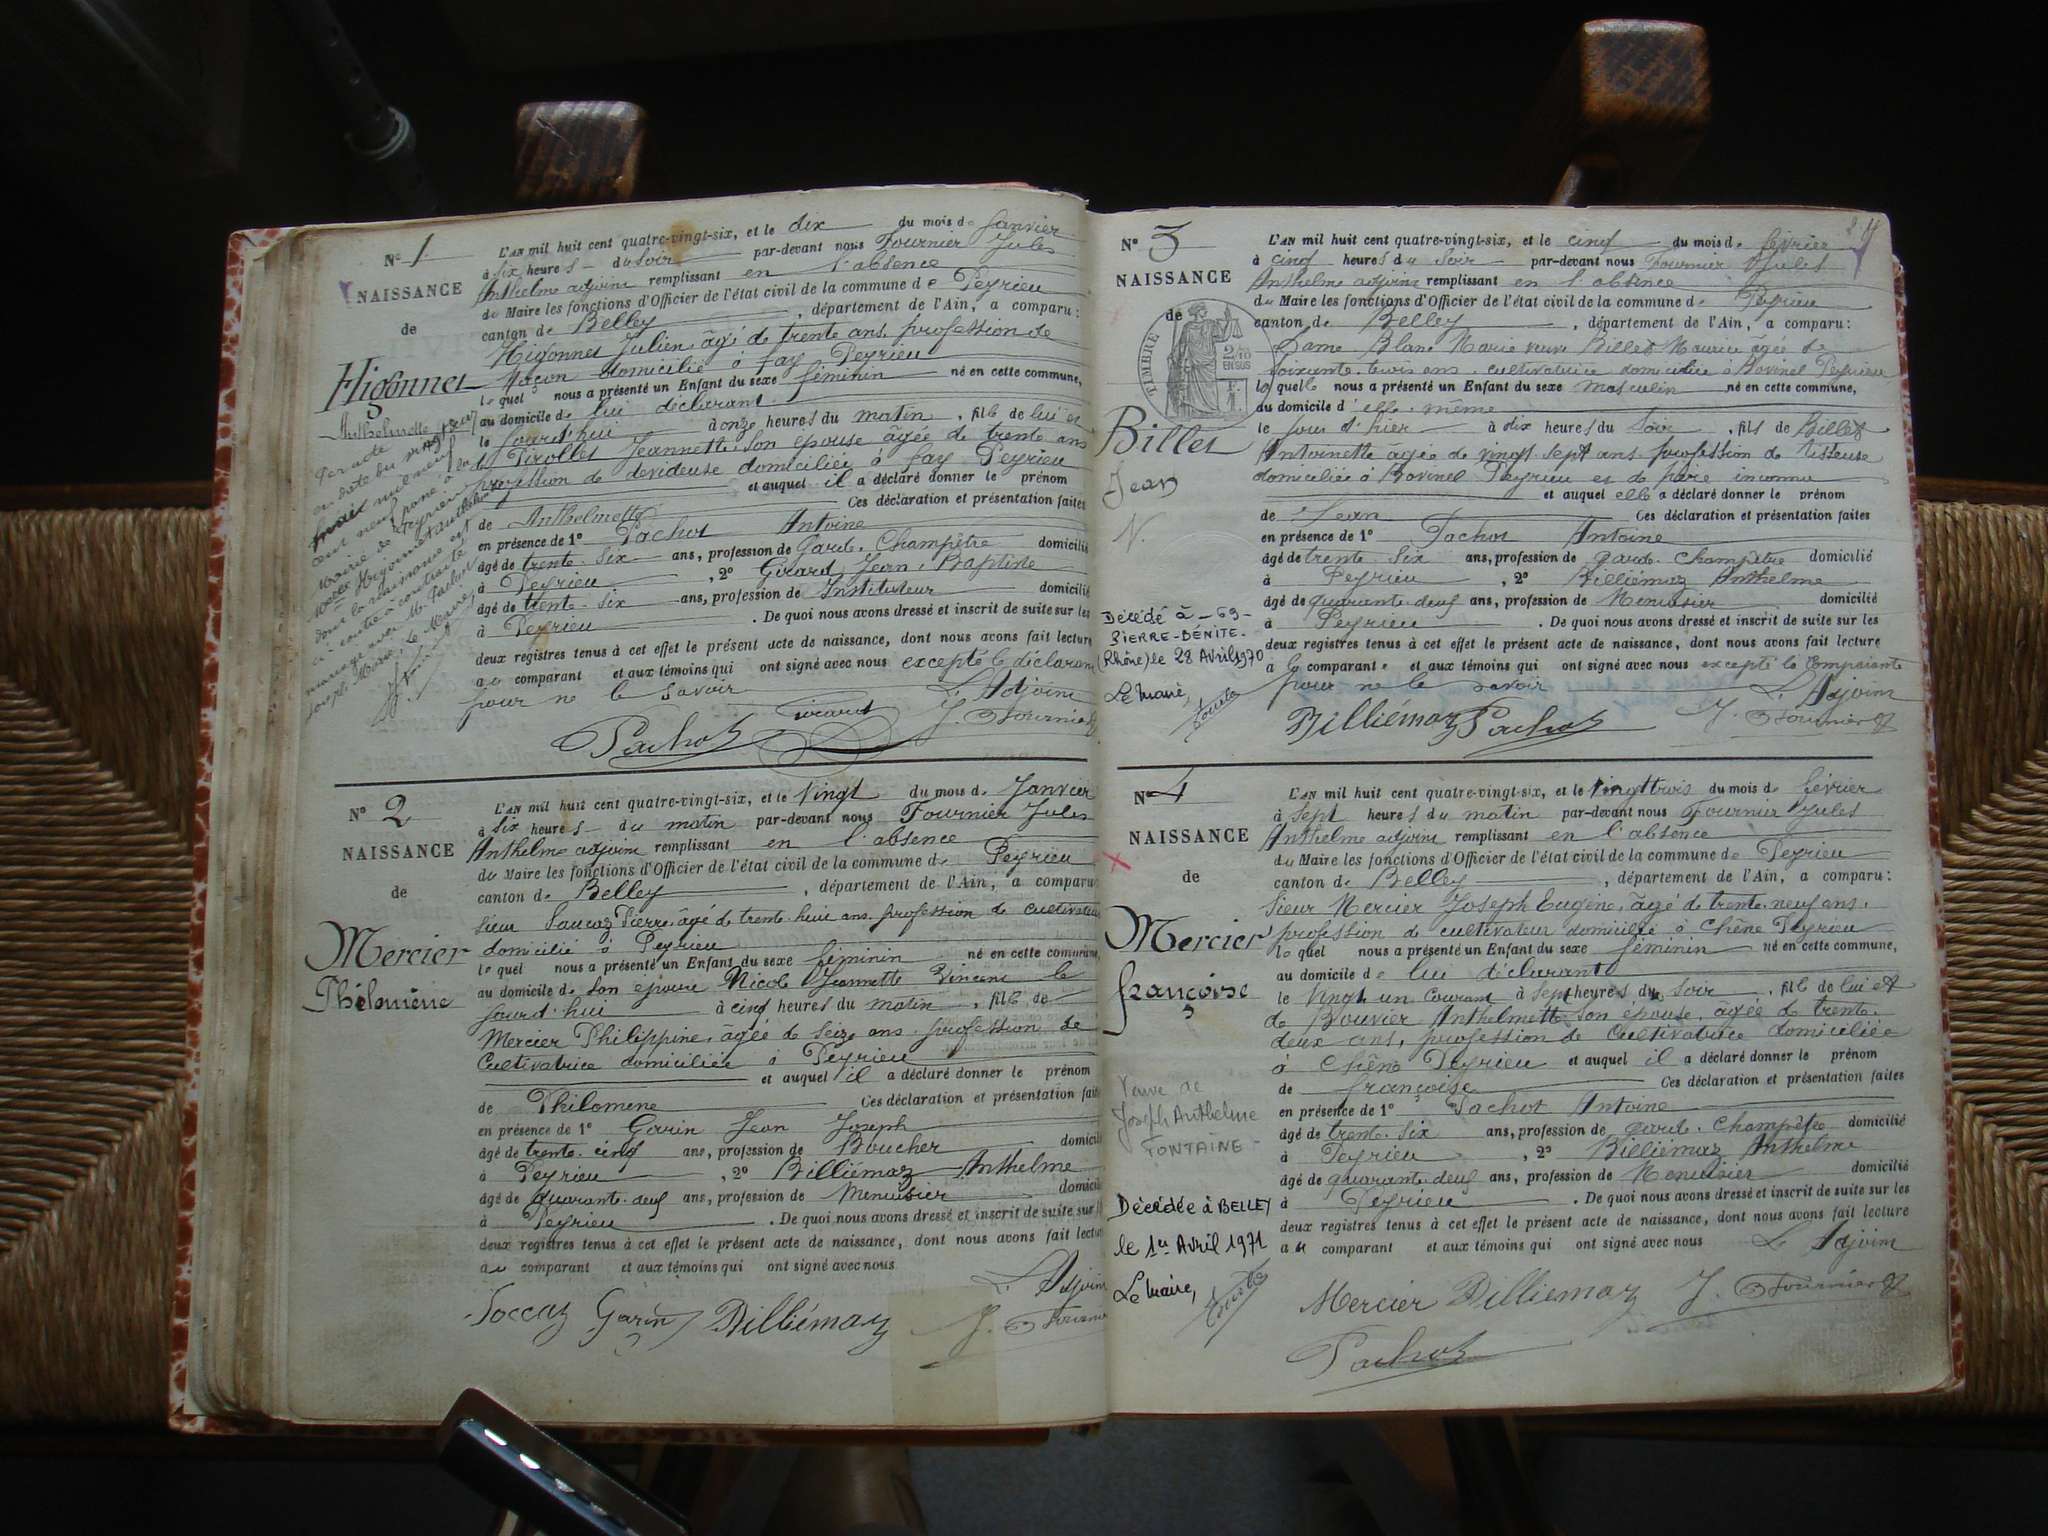 N° 1
NAISSANCE
de
Higonnet
Anthelmette
L'AN mil huit cent quatre-vingt-six, et le dix du mois de Janvier
à six heures du soir par-devant nous Fournier Jules
Anthelme adjoint remplissant en l'absence
du Maire les fonctions d'Officier de l'état civil de la commune de Peyrieu
canton de Belley, département de l'Ain, a comparu:
Higonnet Julien âgé de trente ans profession de
Maçon domicilié à fay Peyrieu
lequel nous a présenté un Enfant du sexe féminin né en cette commune,
au domicile de lui déclarant
le jourd'hui à onze heures du matin, fille de lui et
de Pirollet Jeannette, son epouse âgée de trente ans
profession de devideuse domiciliée à fay Peyrieu
et auquel il a déclaré donner le prénom
de Anthelmette Ces déclaration et présentation faites
en présence de 1° Pachot Antoine
âgé de trente-six ans, profession de Garde-Champêtre domicilié
à Peyrieu, 2° Girard Jean-Baptiste
âgé de trente-six ans, profession de Instituteur domicilié
à Peyrieu. De quoi nous avons dressé et inscrit de suite sur les
deux registres tenus à cet effet le présent acte de naissance, dont nous avons fait lecture
au comparant et aux témoins qui ont signé avec nous excepté le déclarant
pour ne le savoir L'Adjoint
Pachot Girard J. Fournier
N° 2
NAISSANCE
de
Mercier
Philomène
L'AN mil huit cent quatre-vingt-six, et le vingt du mois de Janvier
à six heures du matin par-devant nous Fournier Jules
Anthelme adjoint remplissant en l'absence
du Maire les fonctions d'Officier de l'état civil de la commune de Peyrieu
canton de Belley, département de l'Ain, a comparu
sieur Soucaz Pierre, âgé de trente-huit ans profession de cultivateur
domicilié à Peyrieu
lequel nous a présenté un Enfant du sexe féminin né en cette commune,
au domicile de son epouse Nicole Jeannette Vincent le
jourd'hui à cinq heures du matin, fille de
Mercier Philippine, âgée de seize ans profession de
Cultivatrice domiciliée à Peyrieu
et auquel il a déclaré donner le prénom
de Philomene Ces déclaration et présentation faites
en présence de 1° Garin Jean Joseph
âgé de trente-cinq ans, profession de Boucher domicilié
à Peyrieu, 2° Billiémaz Anthelme
âgé de quarante-deuf ans, profession de Menuisier domicilié
à Peyrieu. De quoi nous avons dressé et inscrit de suite sur les
deux registres tenus à cet effet le présent acte de naissance, dont nous avons fait lecture
au comparant et aux témoins qui ont signé avec nous
L'Adjoint
Soccaz Garin Billiémaz J. Fournier
N° 3
NAISSANCE
de
TIMBRE
Billet
Jean
N.
Décédé à -69-
PIERRE-BÉNITE-
(Rhône) le 28 Avril 1970
Le Maire,
L'AN mil huit cent quatre-vingt-six, et le cinq du mois de février
à cinq heures du soir par-devant nous Fournier Jules
Anthelme adjoint remplissant en l'absence
du Maire les fonctions d'Officier de l'état civil de la commune de Peyrieu
canton de Belley, département de l'Ain, a comparu:
Dame Blanc Marie veuve Billet Maurice âgée de
soixante-trois ans cultivatrice domiciliée à Bovinel Peyrieu
laquelle nous a présenté un Enfant du sexe masculin né en cette commune,
au domicile d'elle-même
le jour d'hier à dix heures du soir, fils de Billet
Antoinette âgée de vingt-sept ans profession de tisseuse
domiciliée à Bovinel Peyrieu et de père inconnu
et auquel elle a déclaré donner le prénom
de Jean Ces déclaration et présentation faites
en présence de 1° Pachot Antoine
âgé de trente-six ans, profession de garde-Champêtre domicilié
à Peyrieu, 2° Billiémaz Anthelme
âgé de quarante-deuf ans, profession de Menuisier domicilié
à Peyrieu. De quoi nous avons dressé et inscrit de suite sur les
deux registres tenus à cet effet le présent acte de naissance, dont nous avons fait lecture
à la comparante et aux témoins qui ont signé avec nous excepté la comparante
pour ne le savoir L'Adjoint
Billiémaz Pachot J. Fournier
N° 4
NAISSANCE
de
Mercier
françoise
Veuve de
Joseph Anthelme
FONTAINE-
Décédée à BELLEY
le 1er Avril 1971
Le Maire,
L'AN mil huit cent quatre-vingt-six, et le vingt trois du mois de février
à sept heures du matin par-devant nous Fournier Jules
Anthelme adjoint remplissant en l'absence
du Maire les fonctions d'Officier de l'état civil de la commune de Peyrieu
canton de Belley, département de l'Ain, a comparu:
sieur Mercier Joseph Eugène, âgé de trente-neuf ans,
profession de cultivateur domicilié à Chêne Peyrieu
lequel nous a présenté un Enfant du sexe féminin né en cette commune,
au domicile de lui déclarant
le vingt-un courant à sept heures du soir, fille de lui et
de Bouvier Anthelmette son épouse, âgée de trente-
deux ans, profession de Cultivatrice domiciliée
à Chêne Peyrieu et auquel il a déclaré donner le prénom
de françoise Ces déclaration et présentation faites
en présence de 1° Pachot Antoine
âgé de trente-six ans, profession de garde-Champêtre domicilié
à Peyrieu, 2° Billiémaz Anthelme
âgé de quarante-deuf ans, profession de Menuisier domicilié
à Peyrieu. De quoi nous avons dressé et inscrit de suite sur les
deux registres tenus à cet effet le présent acte de naissance, dont nous avons fait lecture
au comparant et aux témoins qui ont signé avec nous L'Adjoint
Mercier Billiemaz J. Fournier
Pachot